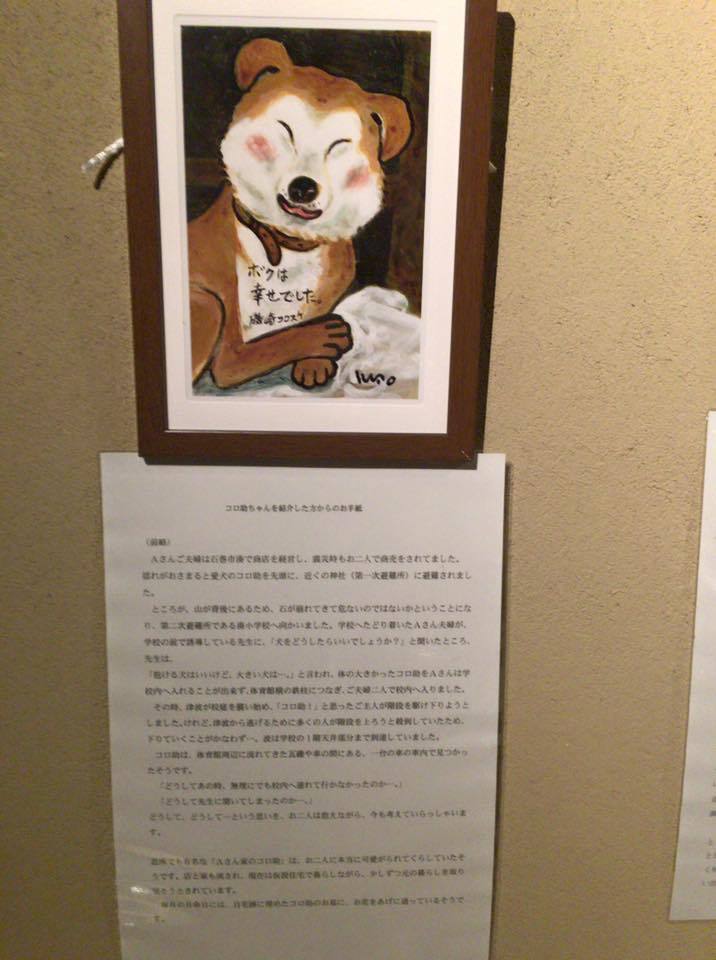 ボクは
幸せでした。
磯崎コロスケ
コロ助ちゃんを紹介した方からのお手紙
（前略）
Aさんご夫婦は石巻市湊で商店を経営し、震災時もお二人で商売をされてました。
揺れがおさまると愛犬のコロ助を先頭に、近くの神社（第一次避難所）に避難されまし
た。
ところが、山が背後にあるため、石が崩れてきて危ないのではないかということにな
り、第二次避難所である湊小学校へ向かいました。学校へたどり着いたAさん夫婦が、
学校の前で誘導している先生に、「犬をどうしたらいいでしょうか？」と聞いたところ、
先生は、
「抱ける犬はいいけど、大きい犬は…。」と言われ、体の大きかったコロ助をAさんは学
校内へ入れることが出来ず、体育館横の鉄柱につなぎ、ご夫婦二人で校内へ入りました。
その時、津波が校庭を襲い始め、「コロ助！」と思ったご主人が階段を駆け下りようと
しました。けれど、津波から逃げるために多くの人が階段を上ろうと殺倒していたため、
下りていくことがかなわず…。波は学校の1階天井部分まで到達していました。
コロ助は、体育館周辺に流れてきた瓦礫や車の間にある、一台の車の車内で見つか
ったそうです。
「どうしてあの時、無理にでも校内へ連れて行かなかったのか…。」
「どうして先生に聞いてしまったのか…。」
どうして、どうして…という思いを、お二人は抱えながら、今も考えていらっしゃいま
す。
近所でも有名な「Aさん家のコロ助」は、お二人に本当に可愛がられてくらしていたそ
うです。店と家も流され、現在は仮設住宅で暮らしながら、少しずつ元の暮らしを取り
戻そうとされています。
毎月の月命日には、自宅跡に埋めたコロ助のお墓に、お花をあげに通っているそうで
す。